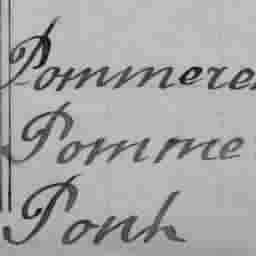 Pommere
Pomme
Ponk